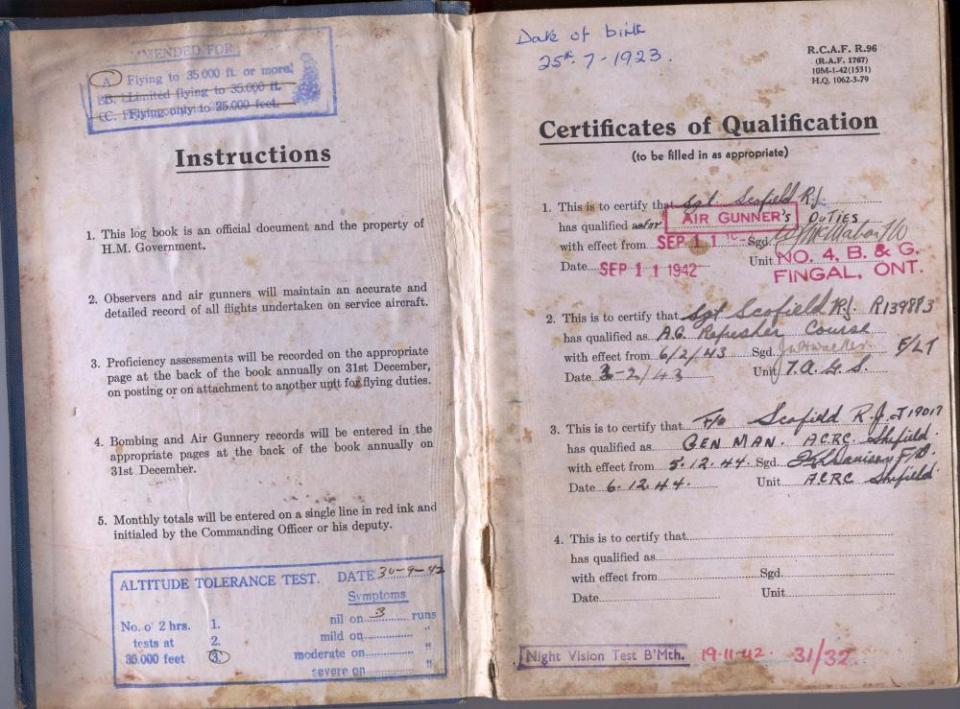 AMENDED FOR
A. Flying to 35000 ft. or more.
B. Limited flying to 35.000 ft.
C. Flying only to 25.000 feet.
Instructions
1. This log book is an official document and the property of
H.M. Government.
2. Observers and air gunners will maintain an accurate and
detailed record of all flights undertaken on service aircraft.
3. Proficiency assessments will be recorded on the appropriate
page at the back of the book annually on 31st December,
on posting or on attachment to another unit for flying duties.
4. Bombing and Air Gunnery records will be entered in the
appropriate pages at the back of the book annually on
31st December.
5. Monthly totals will be entered on a single line in red ink and
initialed by the Commanding Officer or his deputy.
ALTITUDE TOLERANCE TEST. DATE 30-9-42
Symptoms
No. o' 2 hrs. 1. nil on 3 runs
tests at 2. mild on "
35.000 feet 3. moderate on "
severe on "
Date of birth
25th. 7-1923.
R.C.A.F. R.96
(R.A.F. 1767)
10M-1-42(1531)
H.Q. 1062-3-79
Certificates of Qualification
(to be filled in as appropriate)
1. This is to certify that Sgt. Scofield R.J.
has qualified for AIR GUNNER's DUTIES
with effect from SEP 11 Sgd.
Date SEP 11 1942 Unit NO. 4, B. & G.
FINGAL, ONT.
2. This is to certify that Sgt Scofield R.J. R139883
has qualified as A.G. Refresher Course
with effect from 6/2/43 Sgd. F/LT
Date 3-2/43 Unit T.A.G.S.
3. This is to certify that F/O Scofield R.J. J19017
has qualified as GEN MAN. ACRC Shefield.
with effect from 5.12.44. Sgd.
Date 6.12.44. Unit ACRC Shefield
4. This is to certify that
has qualified as
with effect from Sgd.
Date Unit
Night Vision Test B'Mth. 19.11.42. 31/32